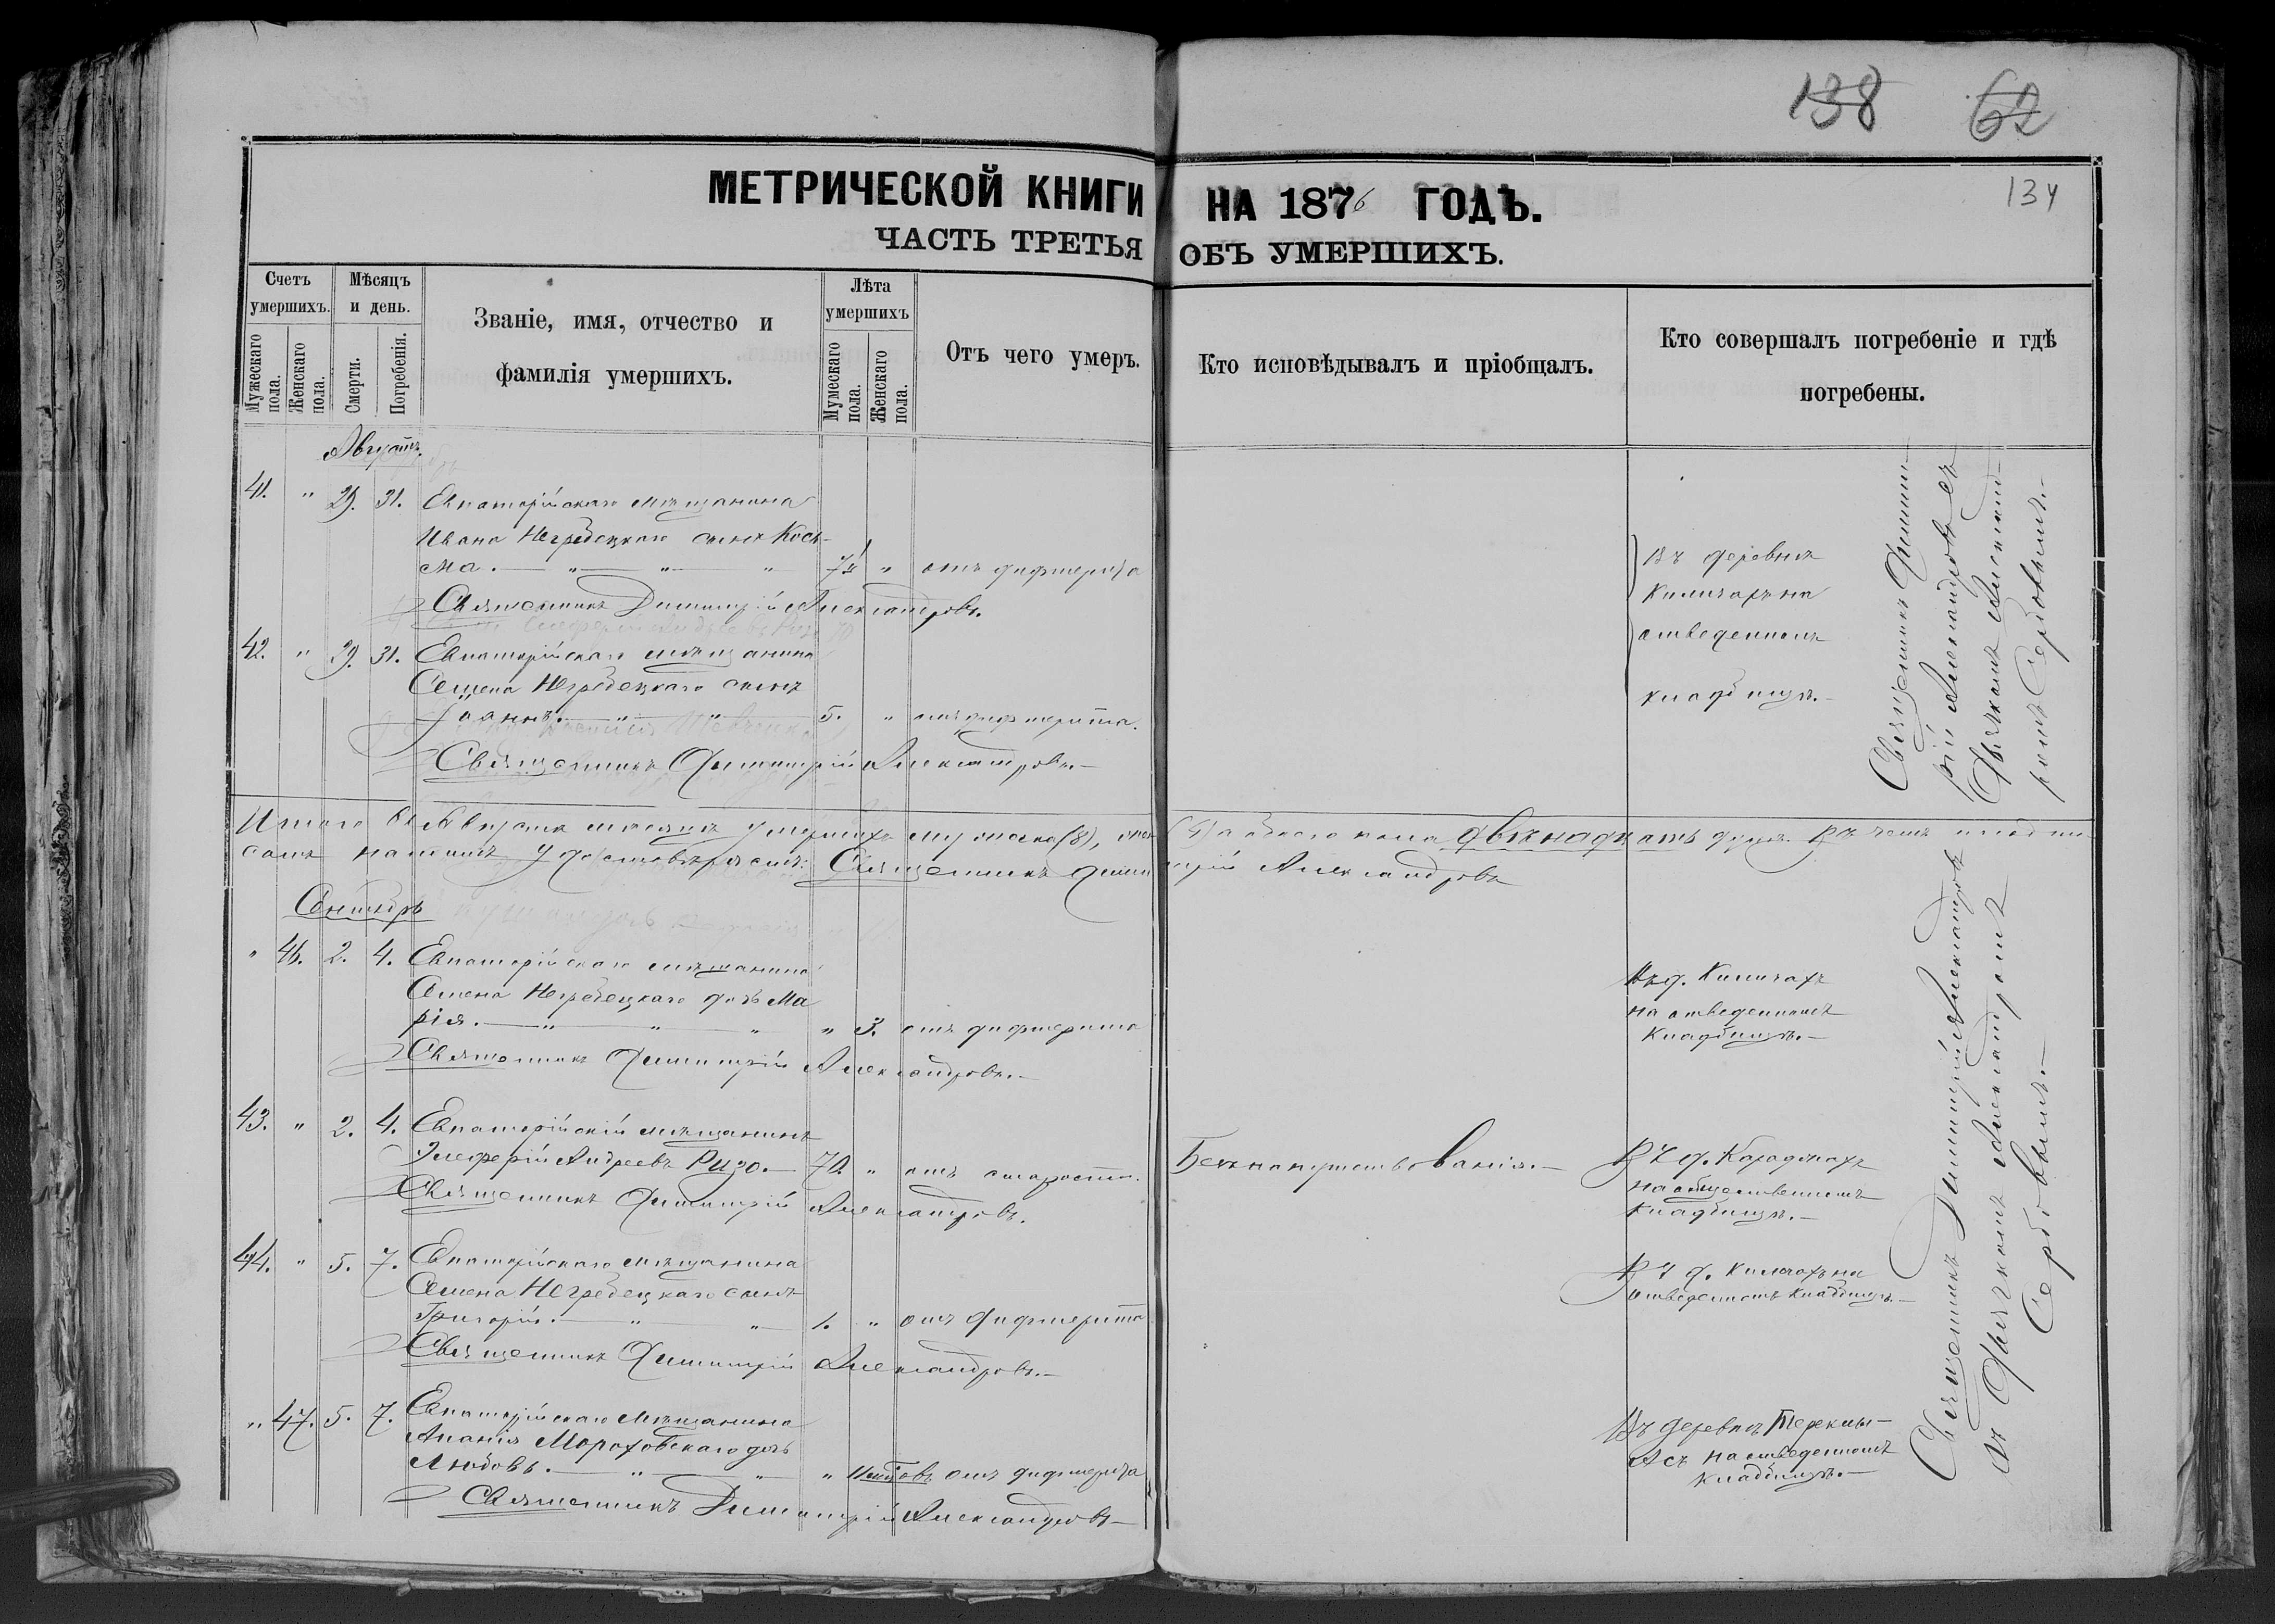 138 62
134
МЕТРИЧЕСКОЙ КНИГИ НА 1876 ГОДЪ.
ЧАСТЬ ТРЕТЬЯ ОБЪ УМЕРШИХЪ.
Счетъ умершихъ.
Мужескаго пола.
Женскаго пола.
Мѣсяцъ и день.
Смерти.
Погребенія.
Званіе, имя, отчество и
фамилія умершихъ.
Лѣта умершихъ
Мужескаго пола.
Женскаго пола.
Отъ чего умеръ.
Кто исповѣдывалъ и пріобщалъ.
Кто совершалъ погребеніе и гдѣ
погребены.
Августъ.
41. " 29. 31. Евпаторійскаго мѣщанина
Ивана Негребецкаго сынъ Козь-
ма. " " " " отъ дифтерита
Священникъ Димитрій Александровъ.
Въ деревнѣ
Киличахъ на
отведенномъ
кладбищѣ.
42. " 29. 31. Евпаторійскаго мѣщанина
Семена Негребецкаго сынъ
Іоаннъ. " " 5. " отъ дифтерита.
Священникъ Димитрій Александровъ.
Священникъ Димит-
рій Александровъ съ
Дьячкомъ Александ-
ромъ Сербовымъ.
Итого въ Августѣ мѣсяцѣ умершихъ мужеска (8), жен (4) а обоего пола двѣнадцать душъ. Въ чемъ подпи
самъ нашимъ удостовѣряемъ: Священникъ Димитрій Александровъ
Сентябрь
" 46. 2. 4. Евпаторійскаго мѣщанина
Семена Негребецкаго дочь Ма
рія. " " " " 3. отъ дифтерита
Священникъ Димитрій Александровъ.
Въ д. Киличахъ
на отведенномъ
кладбищѣ.
43. " 2. 4. Евпаторійскій мѣщанинъ
Элеферій Андреевъ Ризо. 70. " отъ старости.
Священникъ Димитрій Александровъ.
Безъ напутствованія.
Въ д. Караджахъ
на общественномъ
кладбищѣ.
44. " 5. 7. Евпаторійскаго мѣщанина
Семена Негребецкаго сынъ
Григорій. " " 1. " отъ дифтерита
Священникъ Димитрій Александровъ.
Въ д. Киличахъ на
отведенномъ кладбищѣ.
" 47. 5. 7. Евпаторійскаго мѣщанина
Ананія Мороховскаго дочь
Любовь. " " " отъ дифтерита
Священникъ Димитрій Александровъ
Въ деревнѣ Терекли-
Асъ на отведенномъ
кладбищѣ.
Священникъ Димитрій Александровъ
съ Дьячкомъ Александромъ
Сербовымъ.